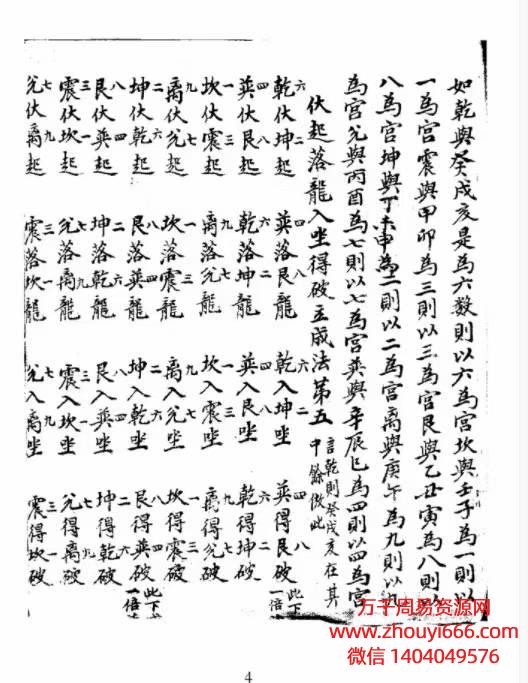 如乾與癸戌亥是為六数則以六為宮坎與壬子為一則以
一為宮震與甲卯為三則以三為宮艮與乙丑寅為八則以
八為宮坤與丁未申為二則以二為宮离與庚午為九則以九
為宮兊與丙酉為七則以七為宮巽與辛辰巳為四則以四為宮
伏起落龍入坐得破立成法第五 言乾則癸戌亥在其
中餘倣此
六乾伏二坤起 四巽落八艮龍 六乾入二坤坐 四巽得八艮破 此下
一倍
四巽伏八艮起 六乾落二坤龍 四巽入八艮坐 六乾得二坤破
一坎伏三震起 九离落七兊龍 一坎入三震坐 九离得七兊破
九离伏七兊起 一坎落三震龍 九离入七兊坐 一坎得三震破
二坤伏六乾起 八艮落四巽龍 二坤入六乾坐 八艮得四巽破 此下
一倍
八艮伏四巽起 二坤落六乾龍 八艮入四巽坐 二坤得六乾破
三震伏一坎起 七兊落九离龍 三震入一坎坐 七兊得九离破
七兊伏九离起 三震落一坎龍 七兊入九离坐 三震得一坎破
万千周易资源网
www.zhouyi666.com
微信 1404049576
4